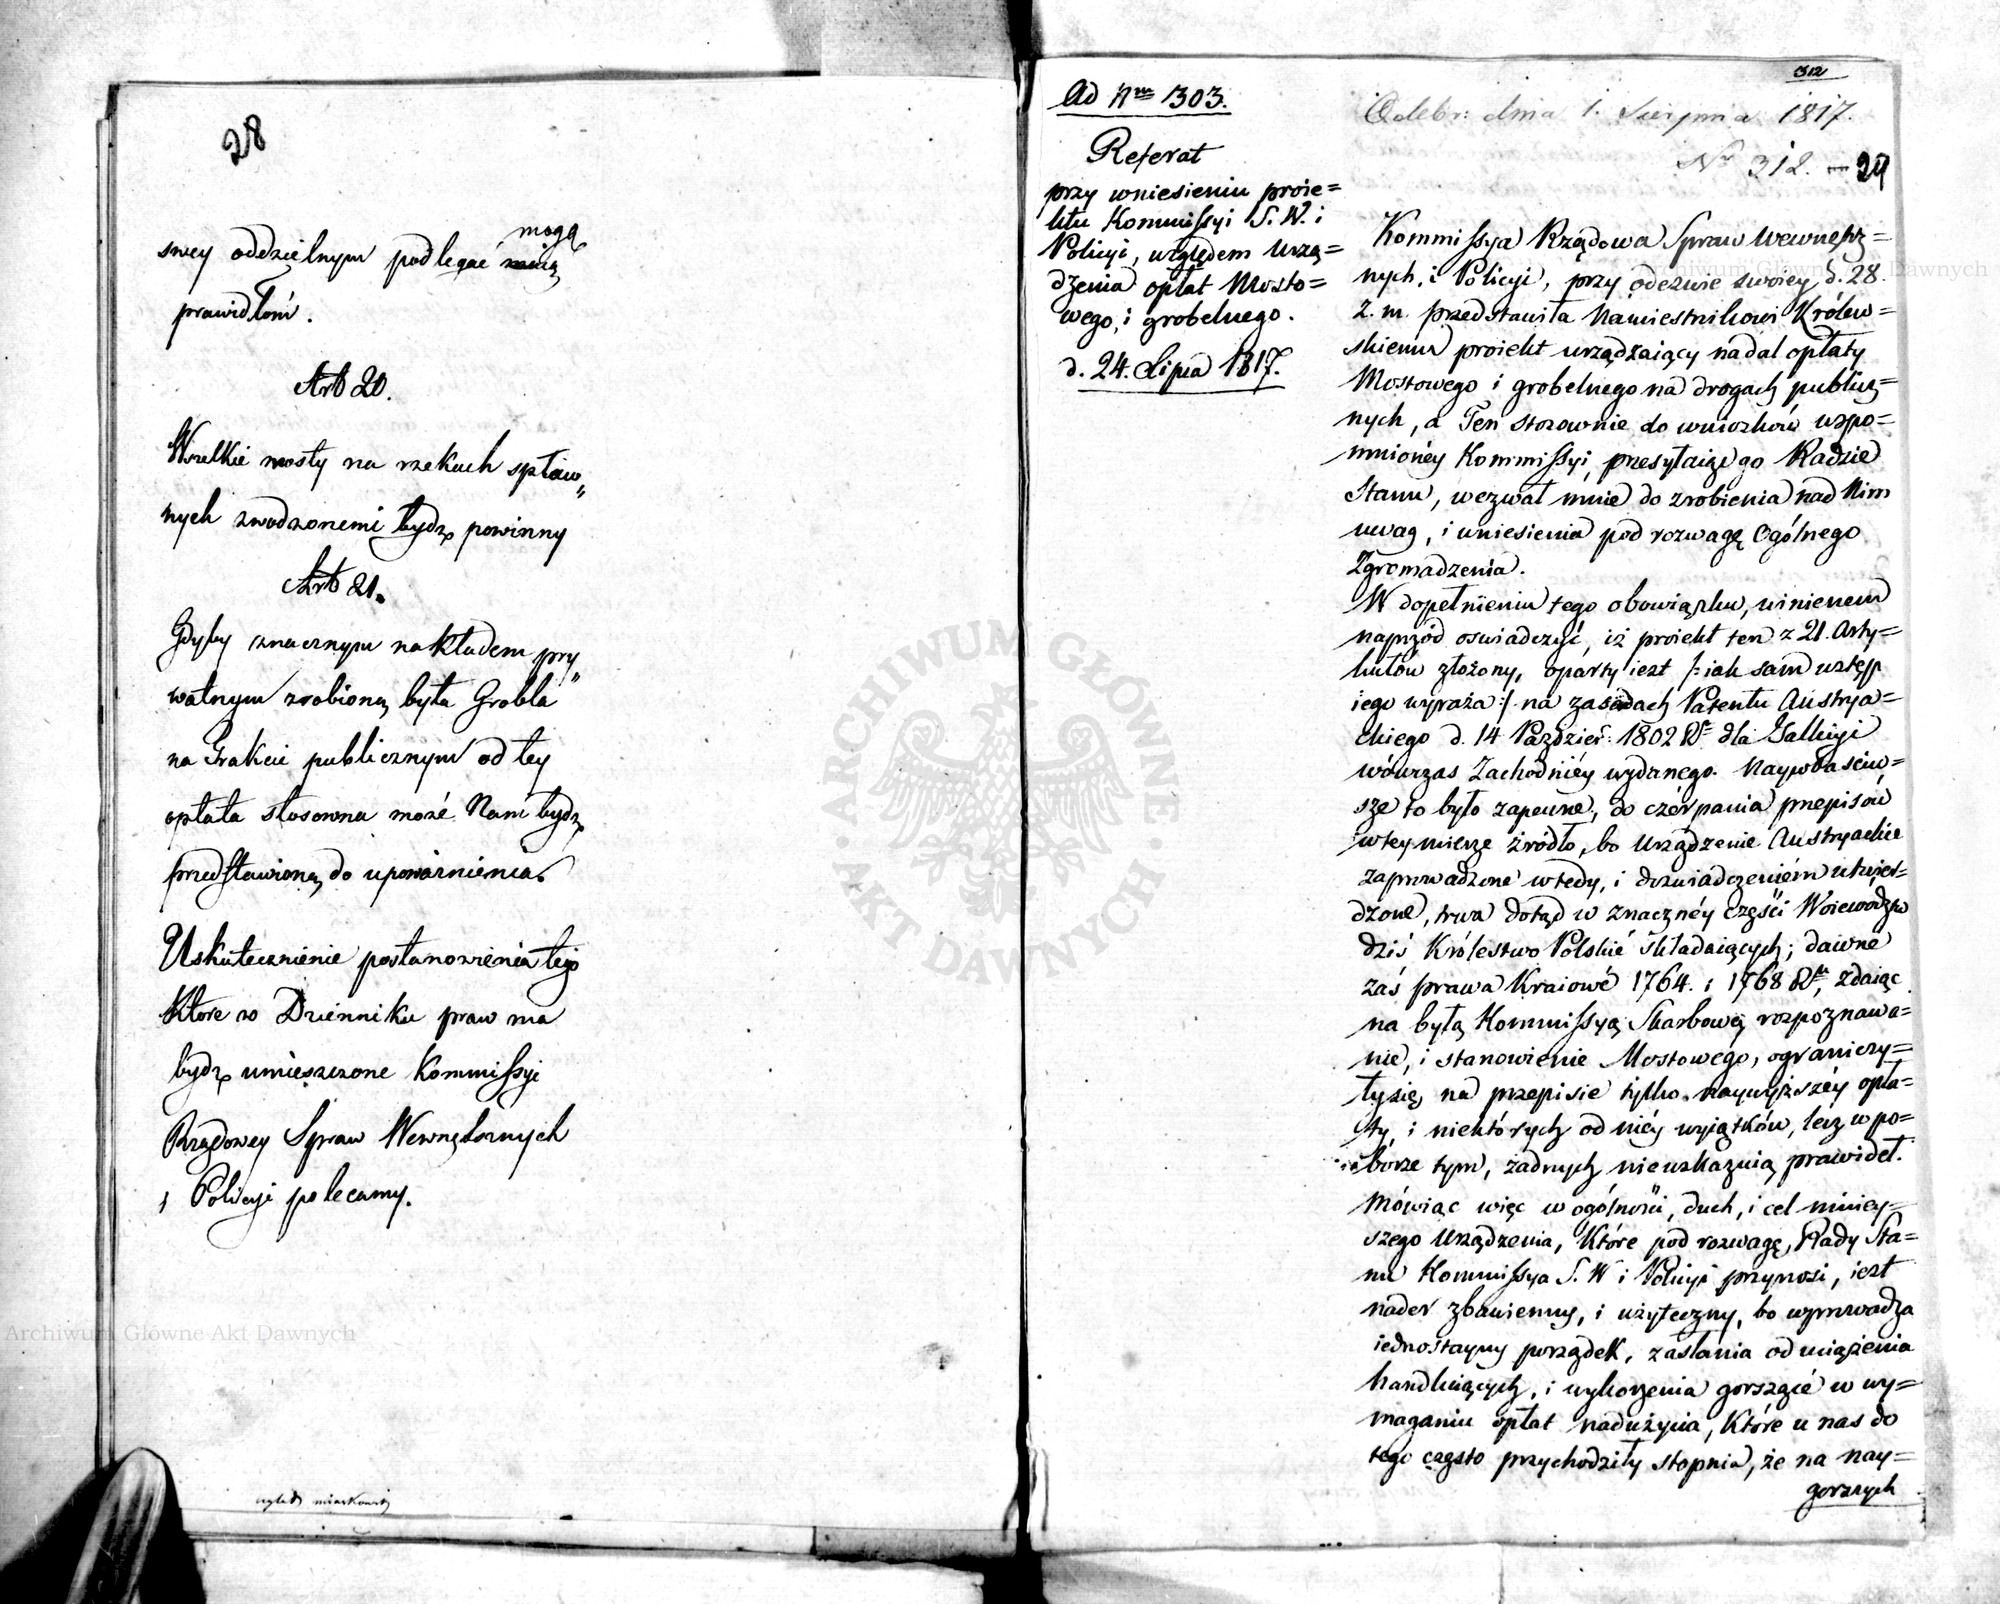 28
swey oddzielnym podlegać mogą
prawidłom.
Art 20.
Wszelkie mosty na rzekach spław„
nych zwodzonemi bydz powinny
Art 21.
Gdyby znacznym nakładem pry„
watnym zrobioną była Grobla
na Trakcie publicznym od tey
opłata stosowna może Nam bydz
przedstawioną do upoważnienia.
Uskutecznienie postanowienia tego
Które w Dzienniku praw ma
bydz umieszczone Kommissyi
Rządowey Spraw Wewnętrznych
i Policyi polecamy.
czytał
Ad Nm 303.
Referat
przy wniesieniu proie=
ktu Kommissyi S. W. i
Policyi, względem urzą=
dzenia opłat Mosto=
wego, i grobelnego.
d. 24. Lipca 1817.
312
Odebr: dnia 1. Sierpnia 1817.
Nr 312. — 29
Kommissya Rządowa Spraw Wewnętrz=
nych, i Policyi, przy odezwie swoiey d. 28.
z. m. przedstawiła Namiestnikowi Królew=
skiemu proiekt urządzaiący nadal opłaty
Mostowego i grobelnego na drogach publicz=
nych, a Ten stosownie do wniosków wspo=
mnioney Kommissyi, przesyłaiąc go Radzie
Stanu, wezwał mnie do zrobienia nad Nim
uwag, i wniesienia pod rozwagę Ogólnego
Zgromadzenia.
W dopełnieniu tego obowiązku, winienem
naprzód oswiadczyć, iż proiekt ten z 21. Arty=
kułów złożony, oparty iest /: iak sam wstęp
iego wyraża :/ na zasadach Patentu Austrya=
ckiego d. 14 Paździer: 1802 R. dla Gallicyi
wówczas Zachodniéy wydanego. Naywłaściw=
sze to było zapewne, do czérpania przepisów
w tey mierze źródło, bo Urządzenie Austryackie
zaprowadzone wtedy, i doswiadczeniém utwier=
dzone, trwa dotąd w znacznéy części Woiewództw
dziś Królestwo Polskié składaiących; dawne
zaś prawa Kraiowé 1764. i 1768 Ru, zdaiąc
na byłą Kommissyą Skarbową rozpoznawa=
nie, i stanowienie Mostowego, ograniczy=
ły się, na przepisie tylko naywyższéy opła=
ty, i niektórych od niéy wyiątków, lecz w po=
borze tym, żadnych nie wskazuią prawideł.
Mówiąc więc w ogólności, duch, i cel niniey=
szego Urządzenia, Które pod rozwagę, Rady Sta=
nu Kommissya S. W i Policyi przynosi, iest
nader zbawienny, i użyteczny, bo wprowadza
iednostayny porządek, zasłania od uciążenia
handluiących, i wykorzenia gorszącé w wy=
maganiu opłat nadużycia, Które u nas do
tego często przychodziły stopnia, że na nay=
gorszych
Archiwum Główne Akt Dawnych
Archiwum Główne Akt Dawnych
ARCHIWUM GŁÓWNE · AKT DAWNYCH ·